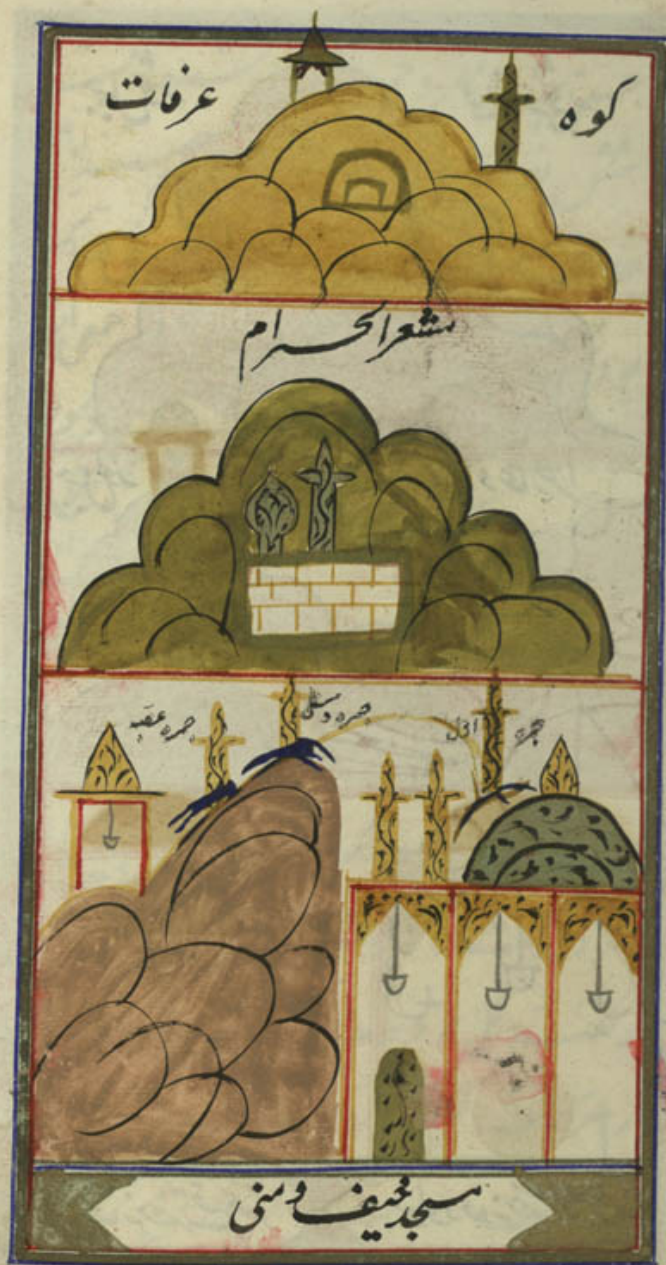 کوه عرفات
مشعر الحرام
جمره اول
جمره وسطی
جمره عقبه
مسجد خیف ومنی